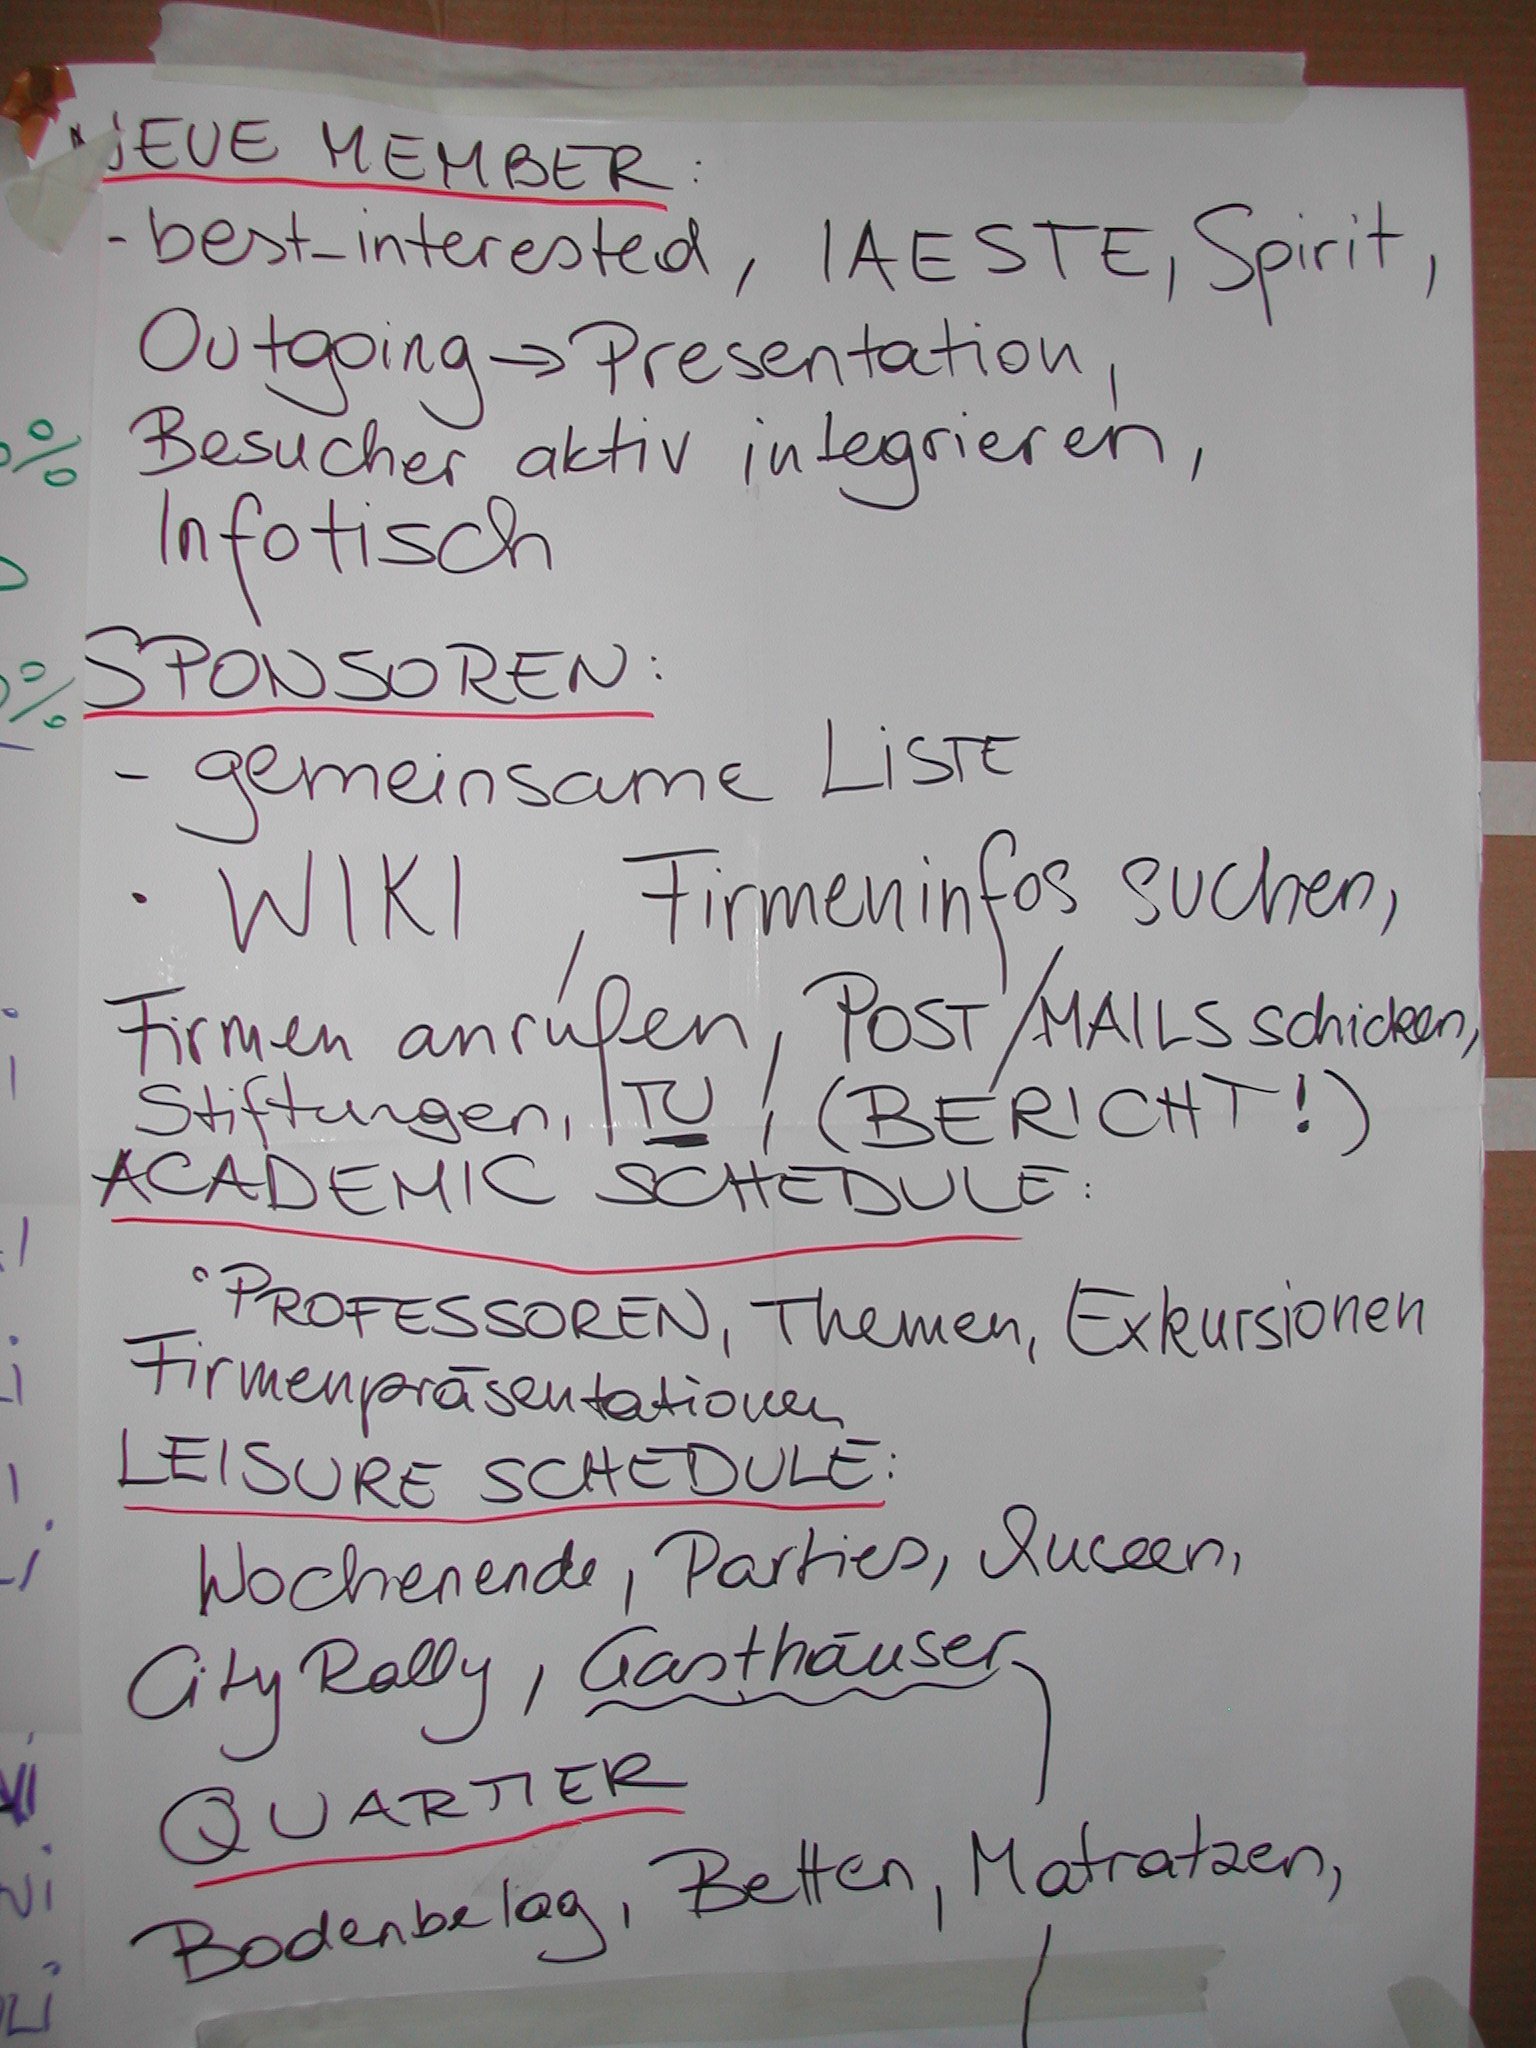 NEUE MEMBER:
- best-interested, IAESTE, Spirit,
Outgoing → Presentation,
Besucher aktiv integrieren,
Infotisch
SPONSOREN:
- gemeinsame LISTE
· WIKI, Firmeninfos suchen,
Firmen anrufen, POST/MAILS schicken,
Stiftungen, TU, (BERICHT!)
ACADEMIC SCHEDULE:
° PROFESSOREN, Themen, Exkursionen
Firmenpräsentationen
LEISURE SCHEDULE:
Wochenende, Parties,
City Rally, Gasthäuser
QUARTIER
Bodenbelag, Betten, Matratzen,